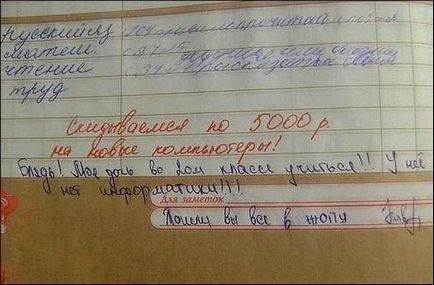 Русский яз
матем. с.97 №5
чтение
труд
Скидываемся по 5000 р.
на новые компьютеры!
Блядь! Моя дочь во 2ом классе учиться!! У неё
нет информатики!!!
Для заметок
Пошли вы все в жопу